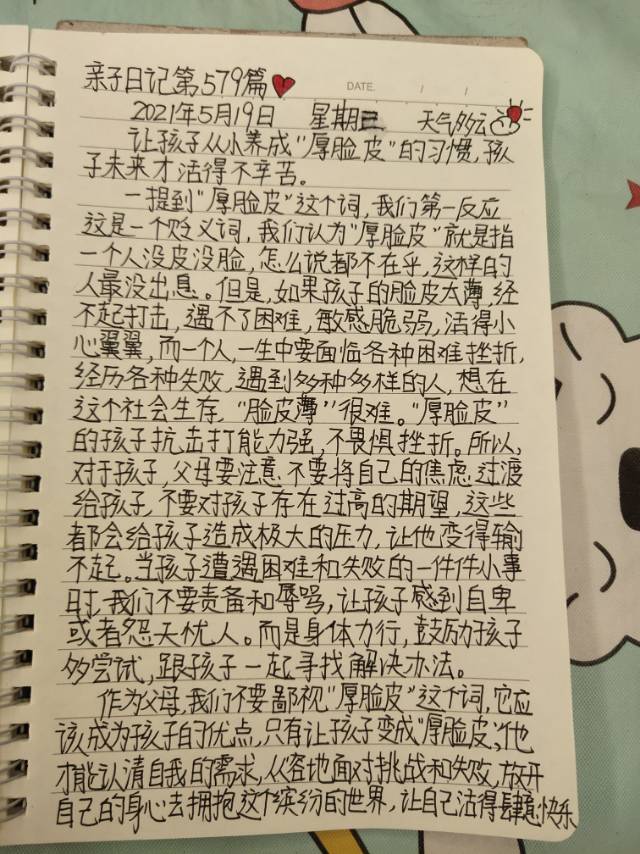 亲子日记第579篇
DATE. / /
2021年5月19日 星期三 天气多云
让孩子从小养成"厚脸皮"的习惯,孩
子未来才活得不辛苦。
一提到"厚脸皮"这个词,我们第一反应
这是一个贬义词,我们认为"厚脸皮"就是指
一个人没皮没脸,怎么说都不在乎,这样的
人最没出息。但是,如果孩子的脸皮太薄,经
不起打击,遇不了困难,敏感脆弱,活得小
心翼翼,而一个人,一生中要面临各种困难挫折,
经历各种失败,遇到多种多样的人,想在
这个社会生存,"脸皮薄"很难。"厚脸皮"
的孩子抗击打能力强,不畏惧挫折。所以,
对于孩子,父母要注意不要将自己的焦虑过渡
给孩子,不要对孩子存在过高的期望,这些
都会给孩子造成极大的压力,让他变得输
不起。当孩子遭遇困难和失败的一件件小事
时,我们不要责备和辱骂,让孩子感到自卑
或者怨天忧人。而是身体力行,鼓励孩子
多尝试,跟孩子一起寻找解决办法。
作为父母,我们不要鄙视"厚脸皮"这个词,它应
该成为孩子的优点,只有让孩子变成"厚脸皮",他
才能认清自我的需求,从容地面对挑战和失败,放开
自己的身心去拥抱这个缤纷的世界,让自己活得肆意快乐